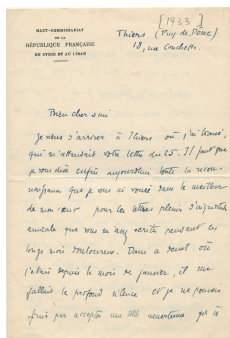 [1933]
HAUT-COMMISSARIAT
DE LA
RÉPUBLIQUE FRANÇAISE
EN SYRIE ET AU LIBAN
Thiers (Puy de Dôme)
18, rue Conchette
Bien cher ami
Je viens d'arriver à Thiers où j'ai trouvé,
qui m'attendait votre lettre du 25. Il faut que
je vous dise enfin aujourd'hui toute la recon-
naissance que je vous ai vouée dans le meilleur
de mon cœur pour les lettres pleines d'inquiétude
amicale que vous m'avez écrites pendant ces
longs mois douloureux. Dans le désert où
j'étais depuis le mois de janvier, il me
fallait le profond silence et je ne pouvais